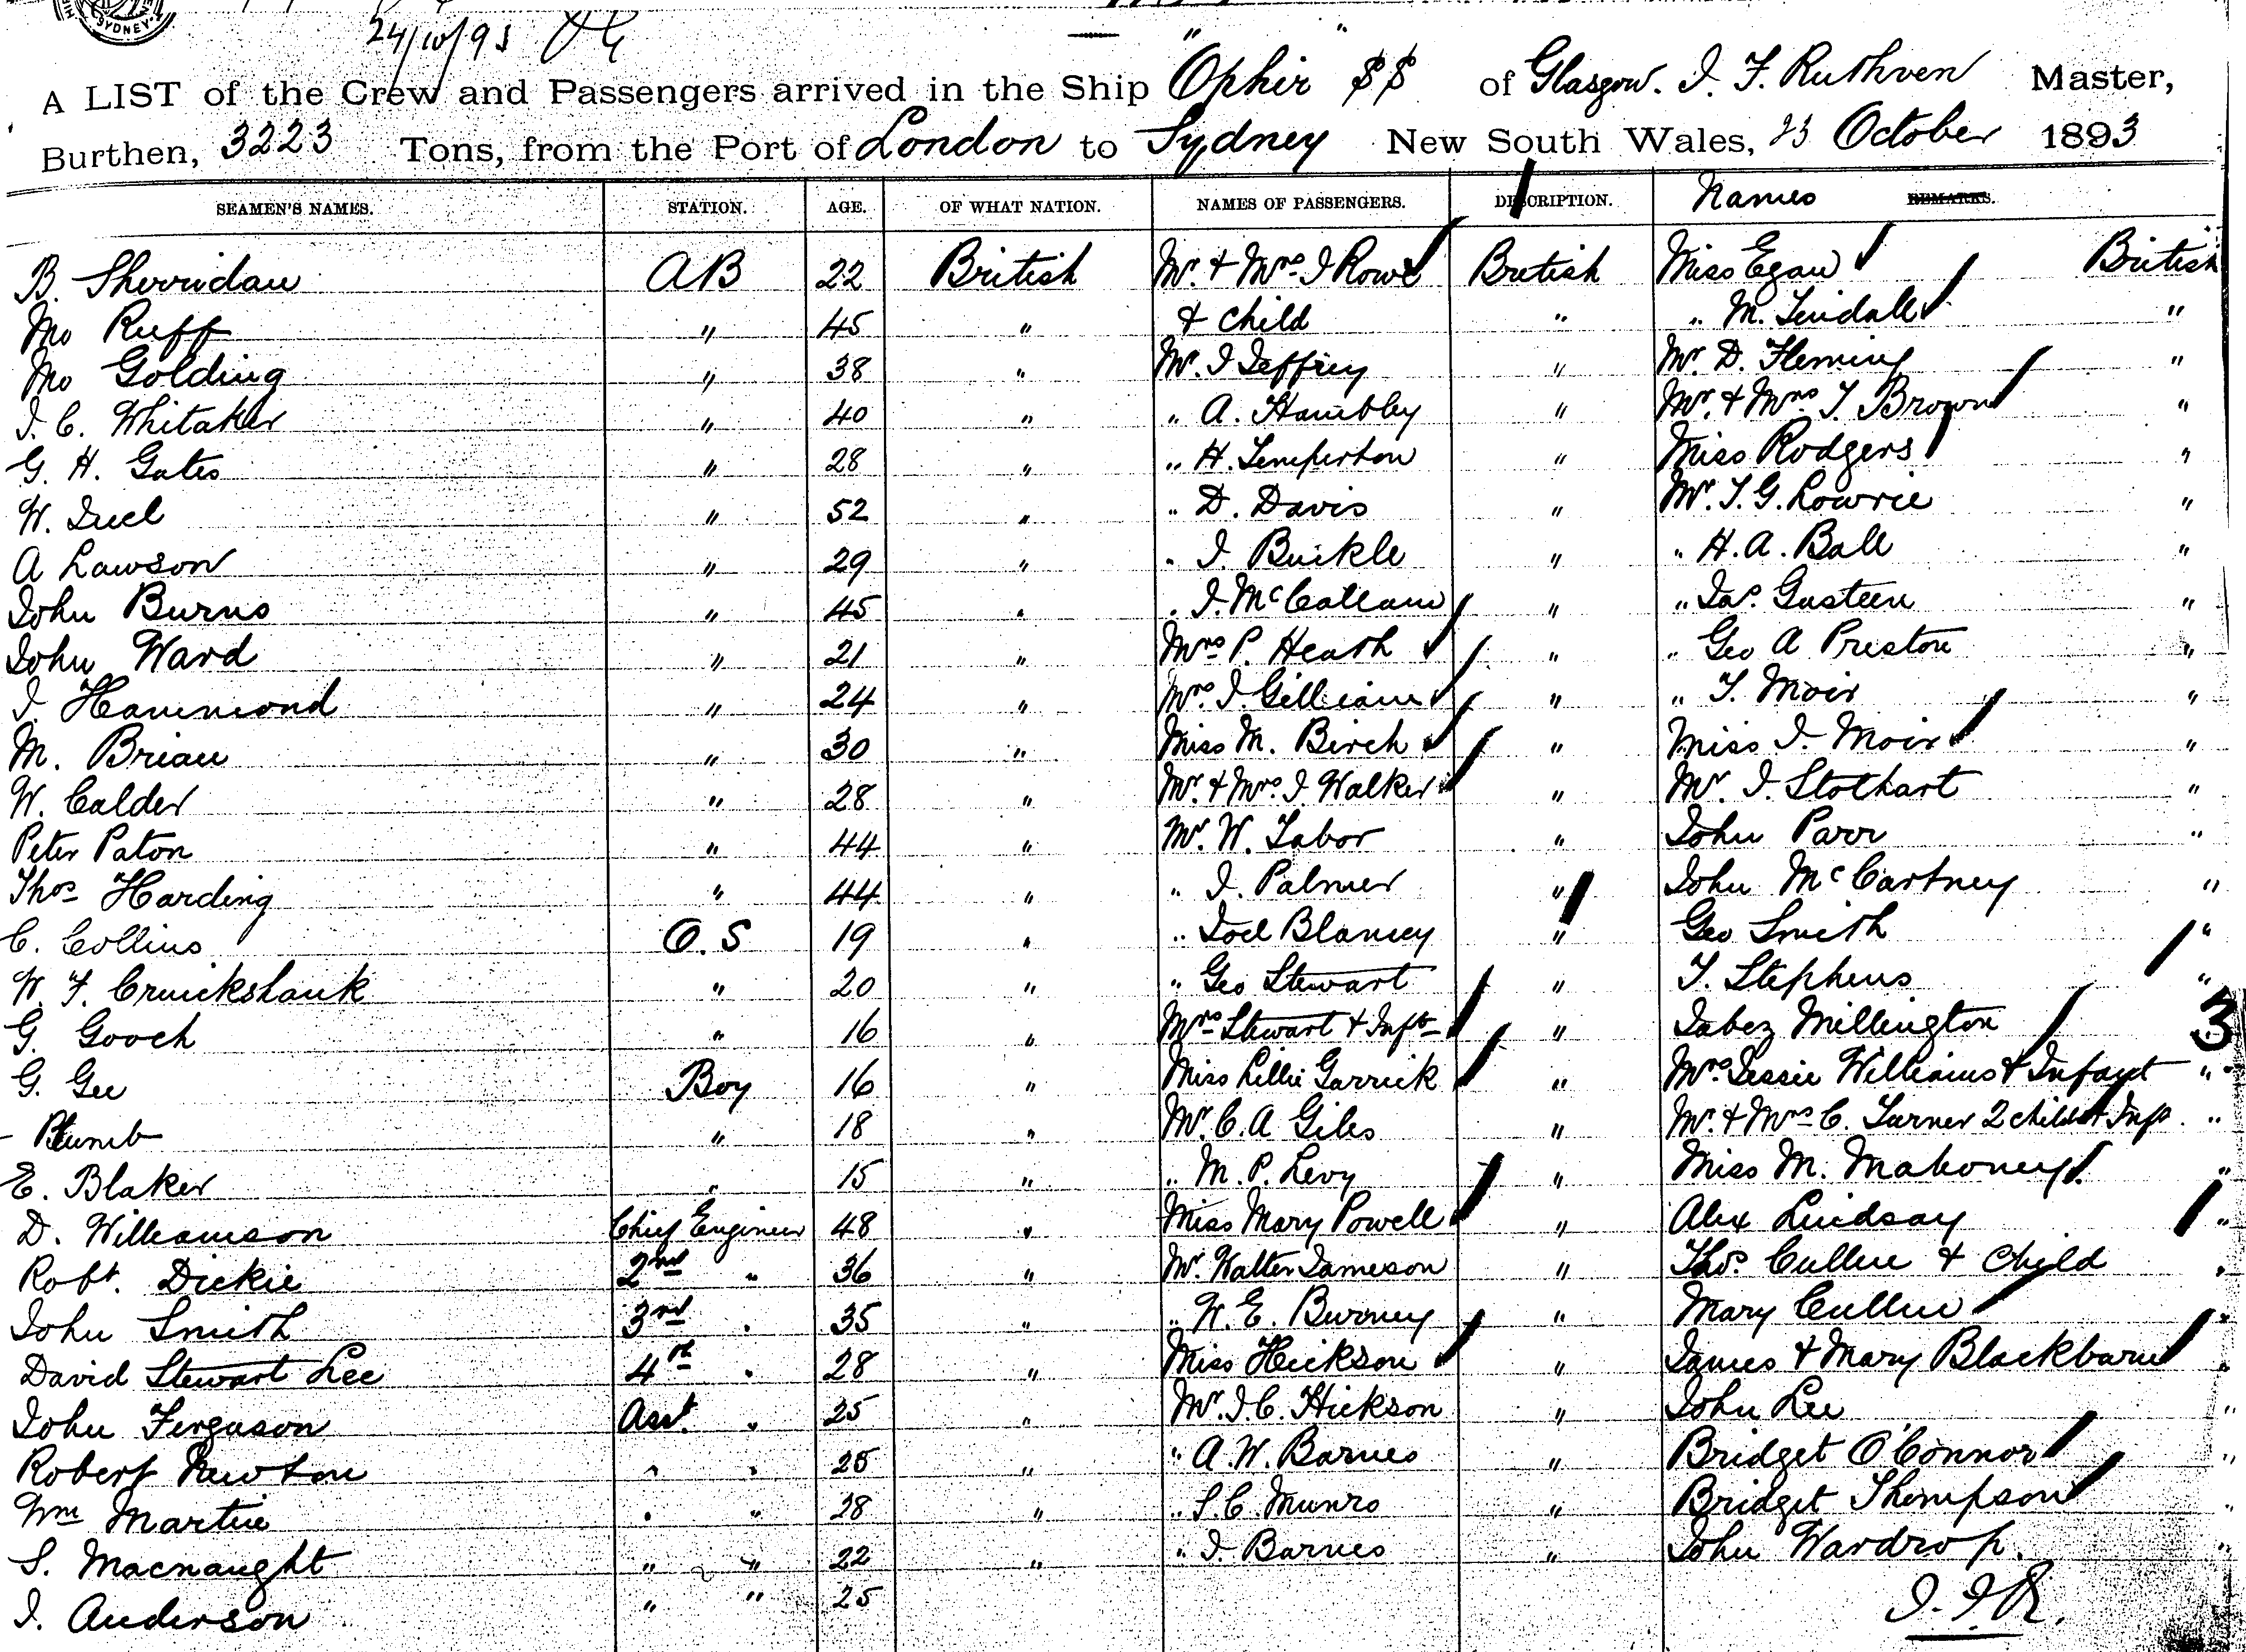 SYDNEY
24/10/93
A LIST of the Crew and Passengers arrived in the Ship "Ophir" SS of Glasgow. J. F. Ruthven Master,
Burthen, 3223 Tons, from the Port of London to Sydney New South Wales, 23 October 1893
SEAMEN'S NAMES. STATION. AGE. OF WHAT NATION. NAMES OF PASSENGERS. DESCRIPTION. Names REMARKS.
B. Sherridan AB 22 British Mr. & Mrs. J Rowe British Miss Egan British
Mo Ruff " 45 " & child " " M. Tindall "
Mo Golding " 38 " Mr. J Jeffrey " Mr. D. Fleming "
J. C. Whitaker " 40 " " A. Hambley " Mr. & Mrs. T. Brown "
G. H. Gates " 28 " " H. Temperton " Miss Rodgers "
W. Duel " 52 " " D. Davis " Mr. T. G. Lowrie "
A Lawson " 29 " " J. Buikle " " H. A. Ball "
John Burns " 45 " " J. McCallum " " Jas. Gusteen "
John Ward " 21 " Mrs P. Heath " " Geo A Preston "
J. Hammond " 24 " Mrs. J. Gilliam " " T. Moir "
M. Brian " 30 " Miss M. Birch " Miss J. Moir "
W. Calder " 28 " Mr. & Mrs. J. Walker " Mr. J. Stothart "
Peter Paton " 44 " Mr. W. Tabor " John Parr "
Thos Harding " 44 " " J. Palmer " John McCartney "
C. Collins O. S 19 " " Joel Blamey " Geo Smith "
W. F. Cruickshank " 20 " " Geo Stewart " T. Stephens "
G. Gooch " 16 " Mrs Stewart & Inft " Jabez Millington 3
G. Gee Boy 16 " Miss Lillie Garrick " Mrs Jessie Williams & Infant "
- Plumb " 18 " Mr. C. A Giles " Mr. & Mrs C. Turner 2 child & Inf. "
E. Blaker " 15 " " M. P. Levy " Miss M. Mahoney "
D. Williamson Chief Engineer 48 " Miss Mary Powell " Alex Lindsay "
Robt. Dickie 2nd " 36 " Mr. Walter Jameson " Thos. Cullen & Child "
John Smith 3rd " 35 " " W. E. Burney " Mary Cullen "
David Stewart Lee 4th " 28 " Miss Hickson " James & Mary Blackburn "
John Ferguson Asst. " 25 " Mr. J. C. Hickson " John Lee "
Robert Newton " " 25 " " A. W. Barnes " Bridget O'Connor "
Wm Martin " " 28 " " S. C. Munro " Bridget Thompson "
S. Macnaught " " 22 " " J. Barnes " John Wardrop. "
J. Anderson " " 25 J. F. R.